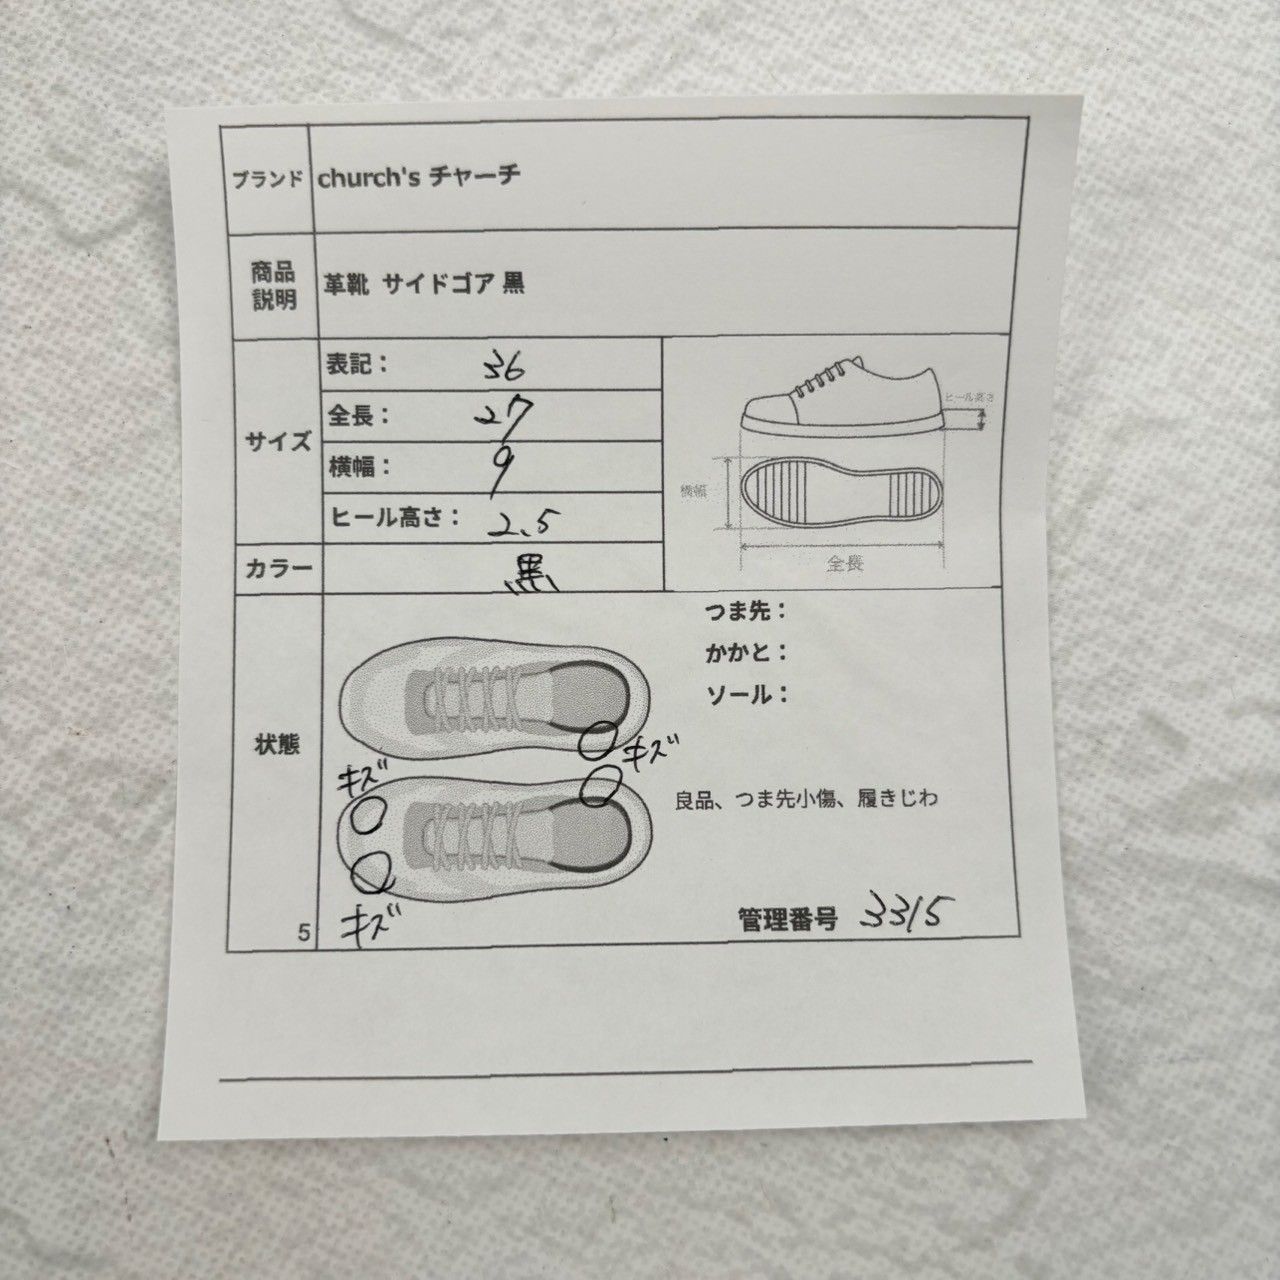 ブランド church's チャーチ
商品説明 革靴 サイドゴア 黒
サイズ
表記： 36
全長： 27
横幅： 9
ヒール高さ： 2.5
ヒール高さ
横幅
全長
カラー 黒
状態
つま先：
かかと：
ソール：
キズ
キズ
良品、つま先小傷、履きじわ
キズ
5
管理番号 3315